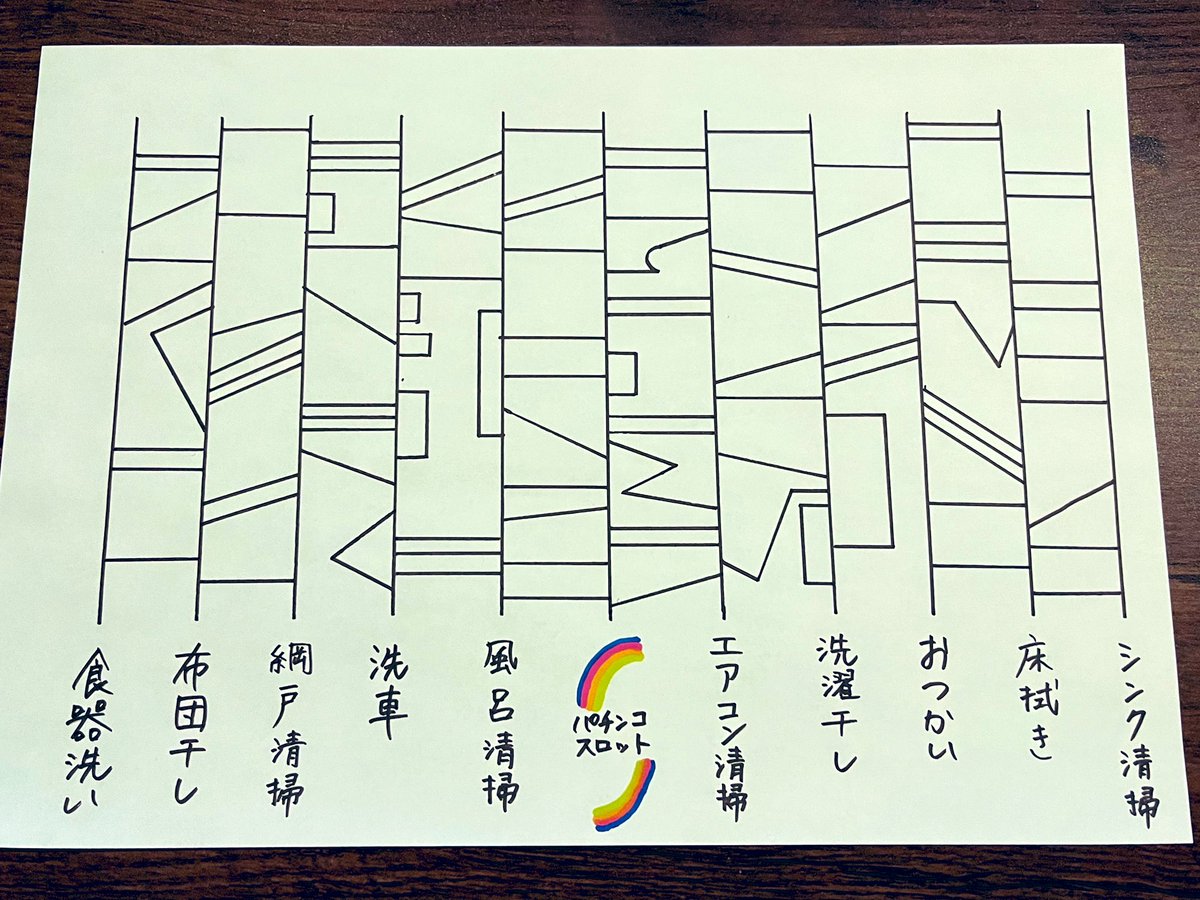 食器洗い
布団干し
綱戸清掃
洗車
風呂清掃
パチンコ
スロット
エアコン清掃
洗濯干し
おつかい
床拭き
シンク清掃